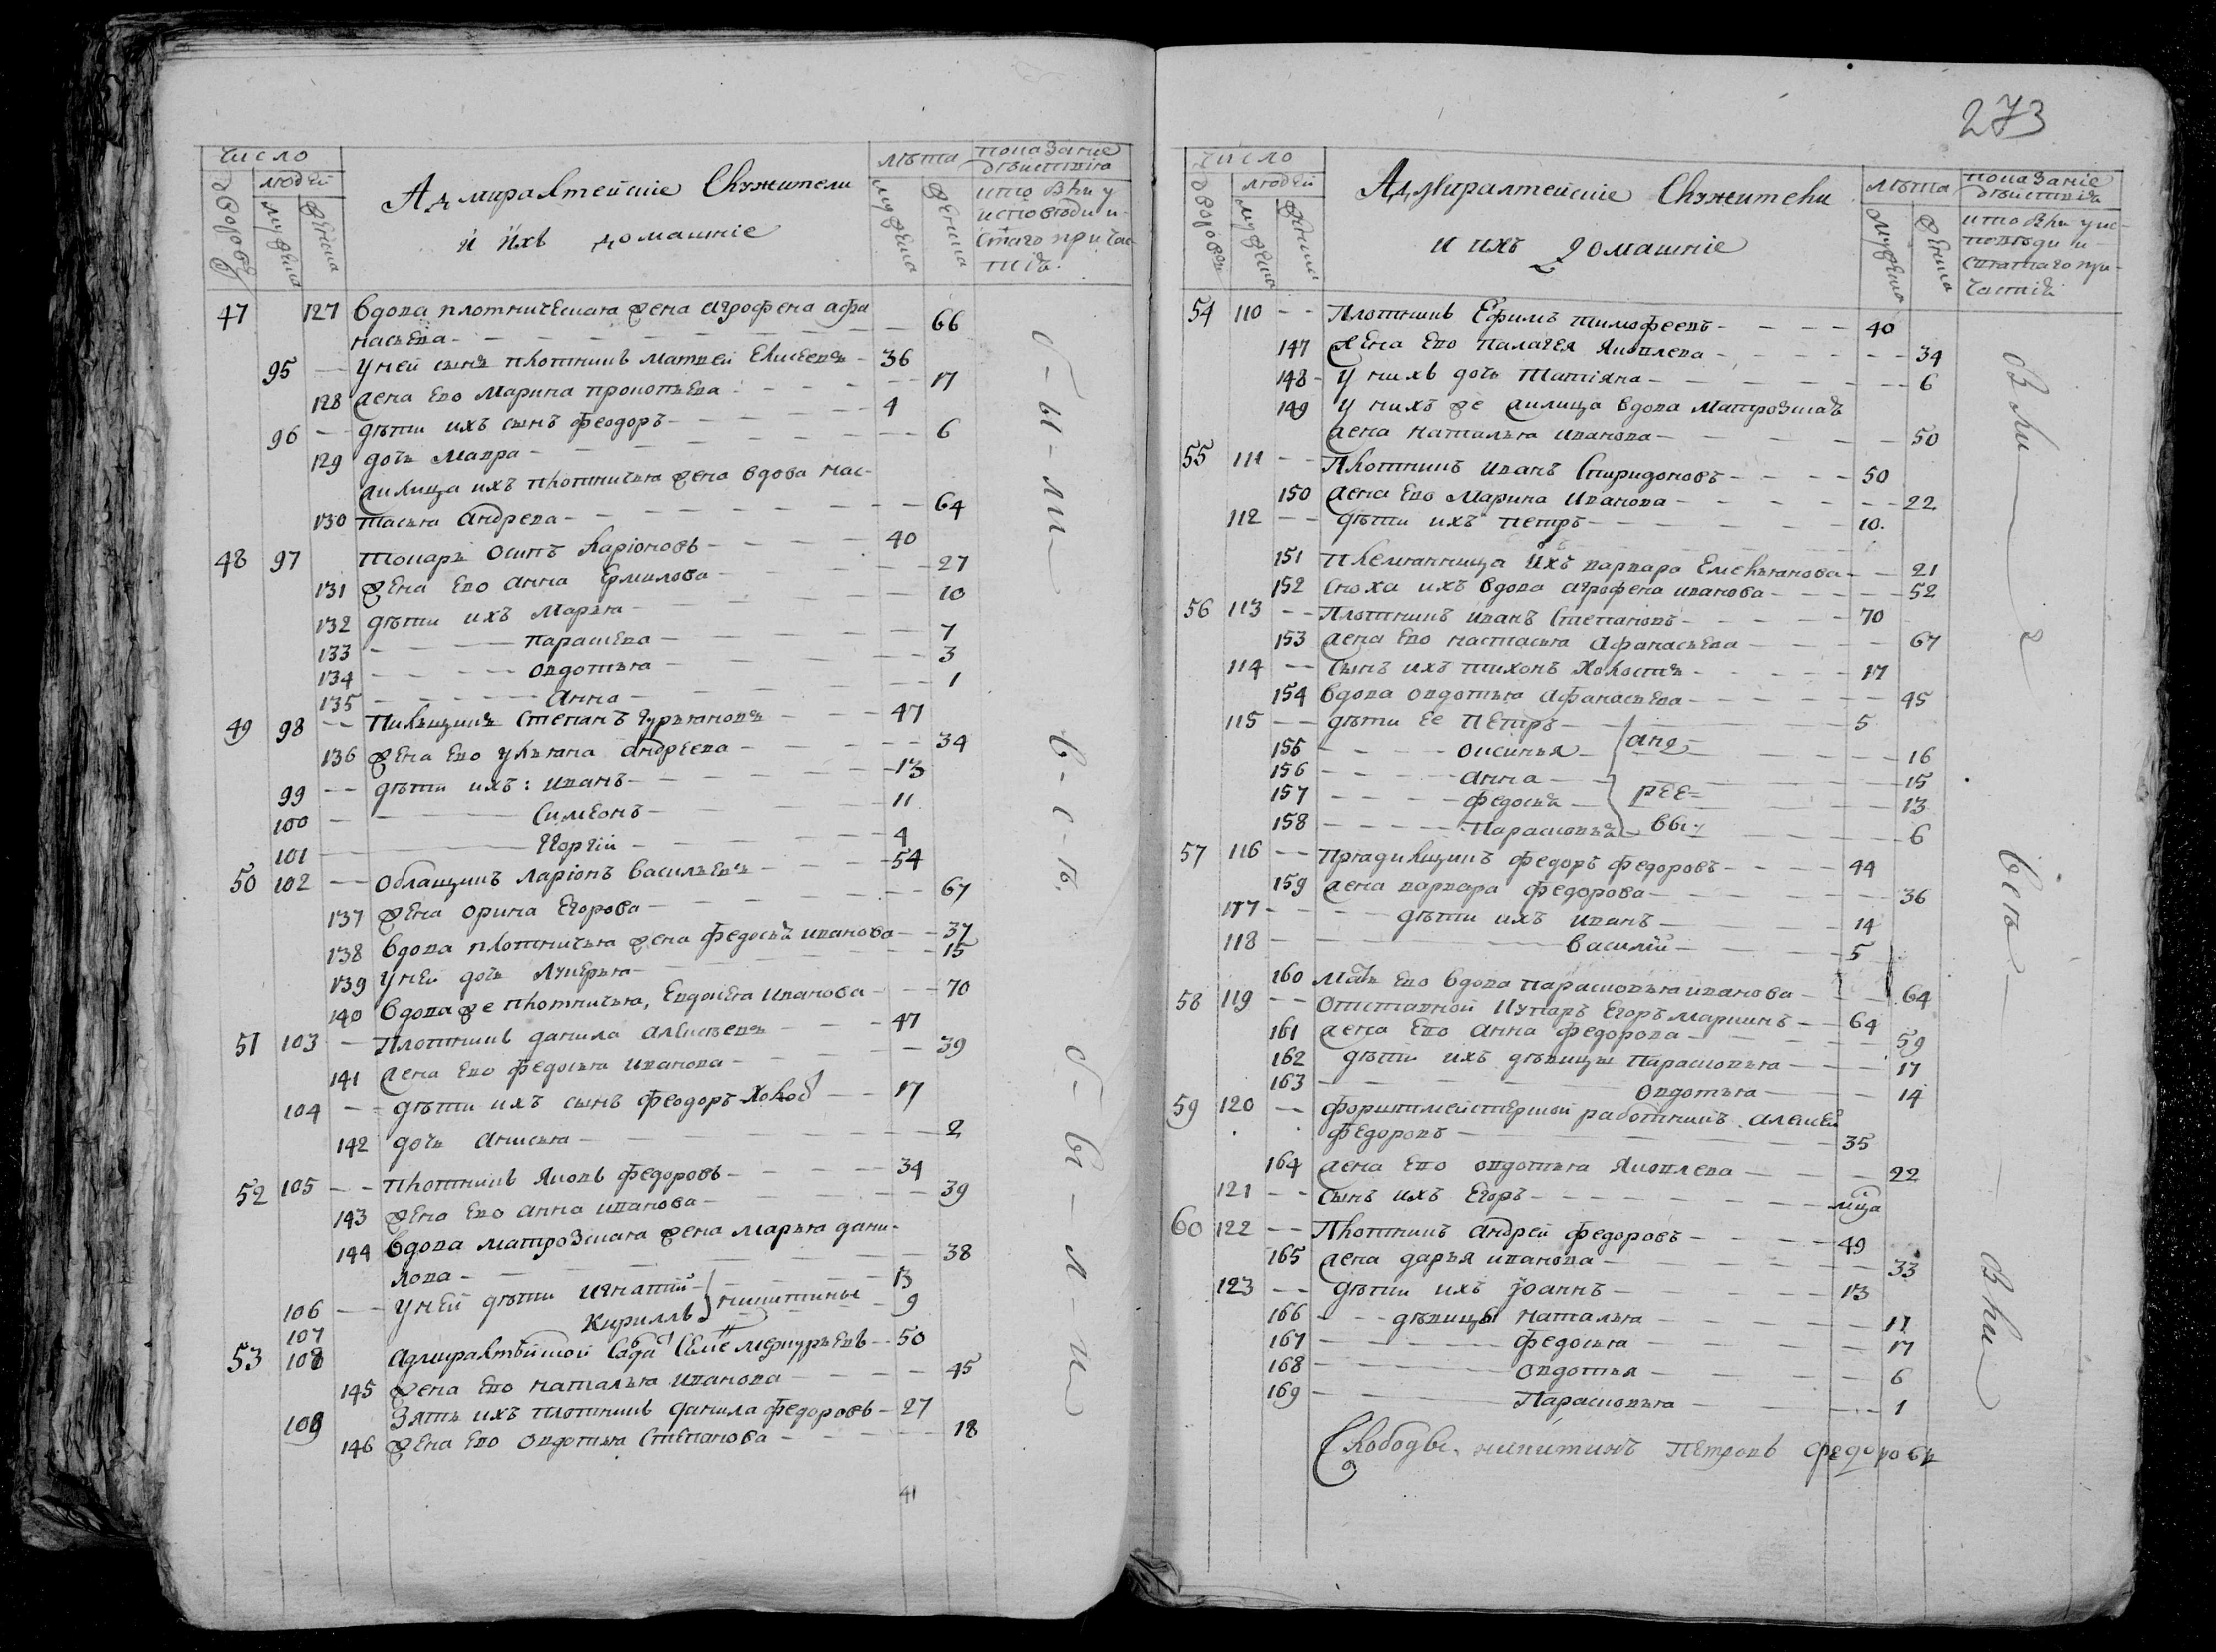 число
людей
дворовъ
мужеска
женска
Адмиралтейскіе Служители
и ихъ домашніе
лѣта
мужеска
женска
показаніе
дѣйствія
кто былъ у
исповѣди и
стаго прича-
стія.
47 127 вдова плотническая жена Агрофена Афа
насьева - 66
95 - у ней сынъ плотникъ Матвей Елисеевъ - 36
128 жена ево Марина Прокопьева - 17
96 - дѣти ихъ сынъ Феодоръ - 4
129 дочь Мавра - 6
жилица ихъ плотничья жена вдова Нас-
130 тасья Андрева - 64
48 97 токарь Осипъ Ларіоновъ - 40
131 жена ево Анна Ермилова - 27
132 дѣти ихъ Марья - 10
133 - Парасьева - 7
134 - Овдотья - 3
135 - Анна - 1
49 98 - Пильщикъ Степанъ Гурьяновъ - 47
136 жена ево Ульяна Андреева - 34
99 - дѣти ихъ: Иванъ - 13
100 - Симеонъ - 11
101 - Георгій - 4
50 102 - Ларіонъ Васильевъ - 54
137 жена Орина Егорова - 67
138 вдова плотничья жена Федосья Иванова - 37
139 у ней дочь Лукерья - 15
140 вдова же плотничья, Евдокея Иванова - 70
51 103 - Плотникъ Данила Алексеевъ - 47
141 жена ево Федосья Иванова - 39
104 - дѣти ихъ сынъ Феодоръ холос - 17
142 дочь Анисья - 2
52 105 - плотникъ Яковъ Федоровъ - 34
143 жена ево Анна Иванова - 39
144 вдова матрозская жена Марья Дани-
лова - 38
106 - у ней дѣти Игнатій 13
107 Кириллъ } Никитины 9
53 108 Адмиралтейской Сада - 50
145 жена ево Наталья Иванова - 45
109 Зять ихъ плотникъ Данила Федоровъ - 27
146 жена ево Овдотья Степанова - 18
41
б-ы-ли
в-с-ѣ
б-ы-л-и
273
число
людей
дворовъ
мужеска
женска
Адмиралтейскіе Служители
и ихъ домашніе
лѣта
мужеска
женска
показаніе
дѣйствія
кто былъ у ис-
повѣди и
святаго при-
частія
54 110 - - Плотникъ Ефимъ Тимофеевъ - 40
147 жена ево Палагея Яковлева - 34
148 - у нихъ дочь Татіяна - 6
149 у нихъ же жилица вдова матрозская
жена Наталья Иванова - 50
55 111 - - Плотникъ Иванъ Спиридоновъ - 50
150 жена ево Марина Иванова - 22
112 - - дѣти ихъ Петръ - 10.
151 племянница ихъ Варвара Емельянова - 21
152 сноха ихъ вдова Агрофена Иванова - 52
56 113 - - Плотникъ Иванъ Степановъ - 70
153 жена ево Настасья Афанасьева - 67
114 - - сынъ ихъ Тихонъ холостъ - 17
154 вдова Овдотья Афанасьева - 45
115 - - дѣти ее Петръ - 5
155 - Оксинья - Анд- 16
156 - Анна - 15
157 - Федосья - рее= 13
158 - Парасковья - вы 6
57 116 - - Прядильщикъ Федоръ Федоровъ - 44
159 жена Варвара Федорова - 36
117 - дѣти ихъ Иванъ - 14
118 - Василій - 5
160 Мать ево вдова Парасковья Иванова - 64
58 119 - - Отставной Купаръ Егоръ Маркинъ - 64
161 жена ево Анна Федорова - 59
162 дѣти ихъ дѣвицы Парасковья - 17
163 - Овдотья - 14
59 120 - - Форштмейстерской работникъ Алексей
Федоровъ - 35
164 жена ево Овдотья Яковлева - 22
121 - - сынъ ихъ Егоръ - мца
60 122 - - Плотникъ Андрей Федоровъ - 49
165 жена Дарья Иванова - 33
123 - - дѣти ихъ Іоаннъ - 13
166 - - дѣвицы Наталья - 17
167 - Федосья - 17
168 - Овдотья - 6
169 - Парасковья - 1
Слободы. Никитинъ Петровъ Федоровъ
Были
всѣ
Были